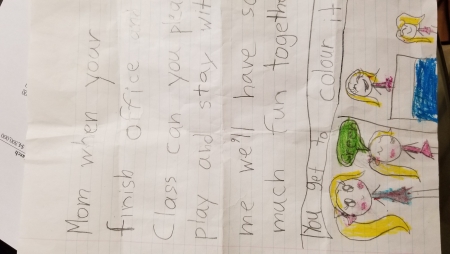 Mom when your
finish office and
Class can you
play and stay
me we'll have so
much fun together
You get to colour it